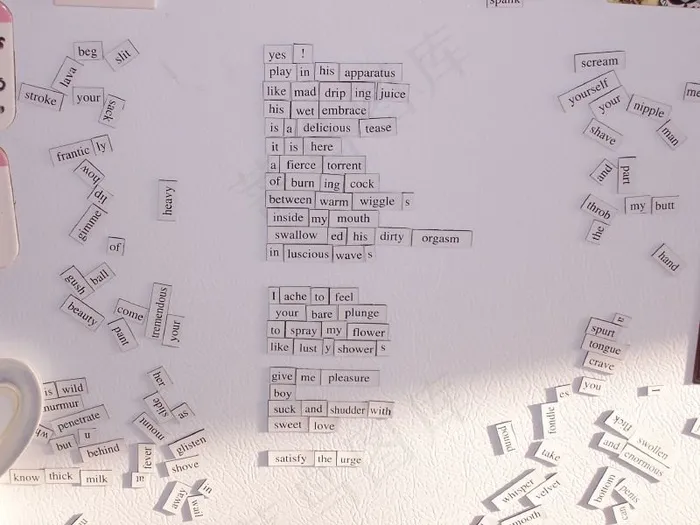 spank
beg
slit
lava
stroke
your
sack
frantic ly
how
lip
gimme
heavy
of
gush
ball
beauty
come
tremendous
pant
your
is wild
penetrate
but u
behind
know thick milk
her
slide
as
mount
glisten
fever
shove
in
away
wail
yes !
play in his apparatus
like mad drip ing juice
his wet embrace
is a delicious tease
it is here
a fierce torrent
of burn ing cock
between warm wiggle s
inside my mouth
swallow ed his dirty orgasm
in luscious wave s
I ache to feel
your bare plunge
to spray my flower
like lust y shower s
give me pleasure
boy
suck and shudder with
sweet love
satisfy the urge
scream
yourself
your
nipple
man
me
shave
and
part
throb
my butt
the
hand
a
spurt
tongue
crave
you
es
fondle
pound
take
lick
swollen
and
enormous
whisper
velvet
bottom
penis